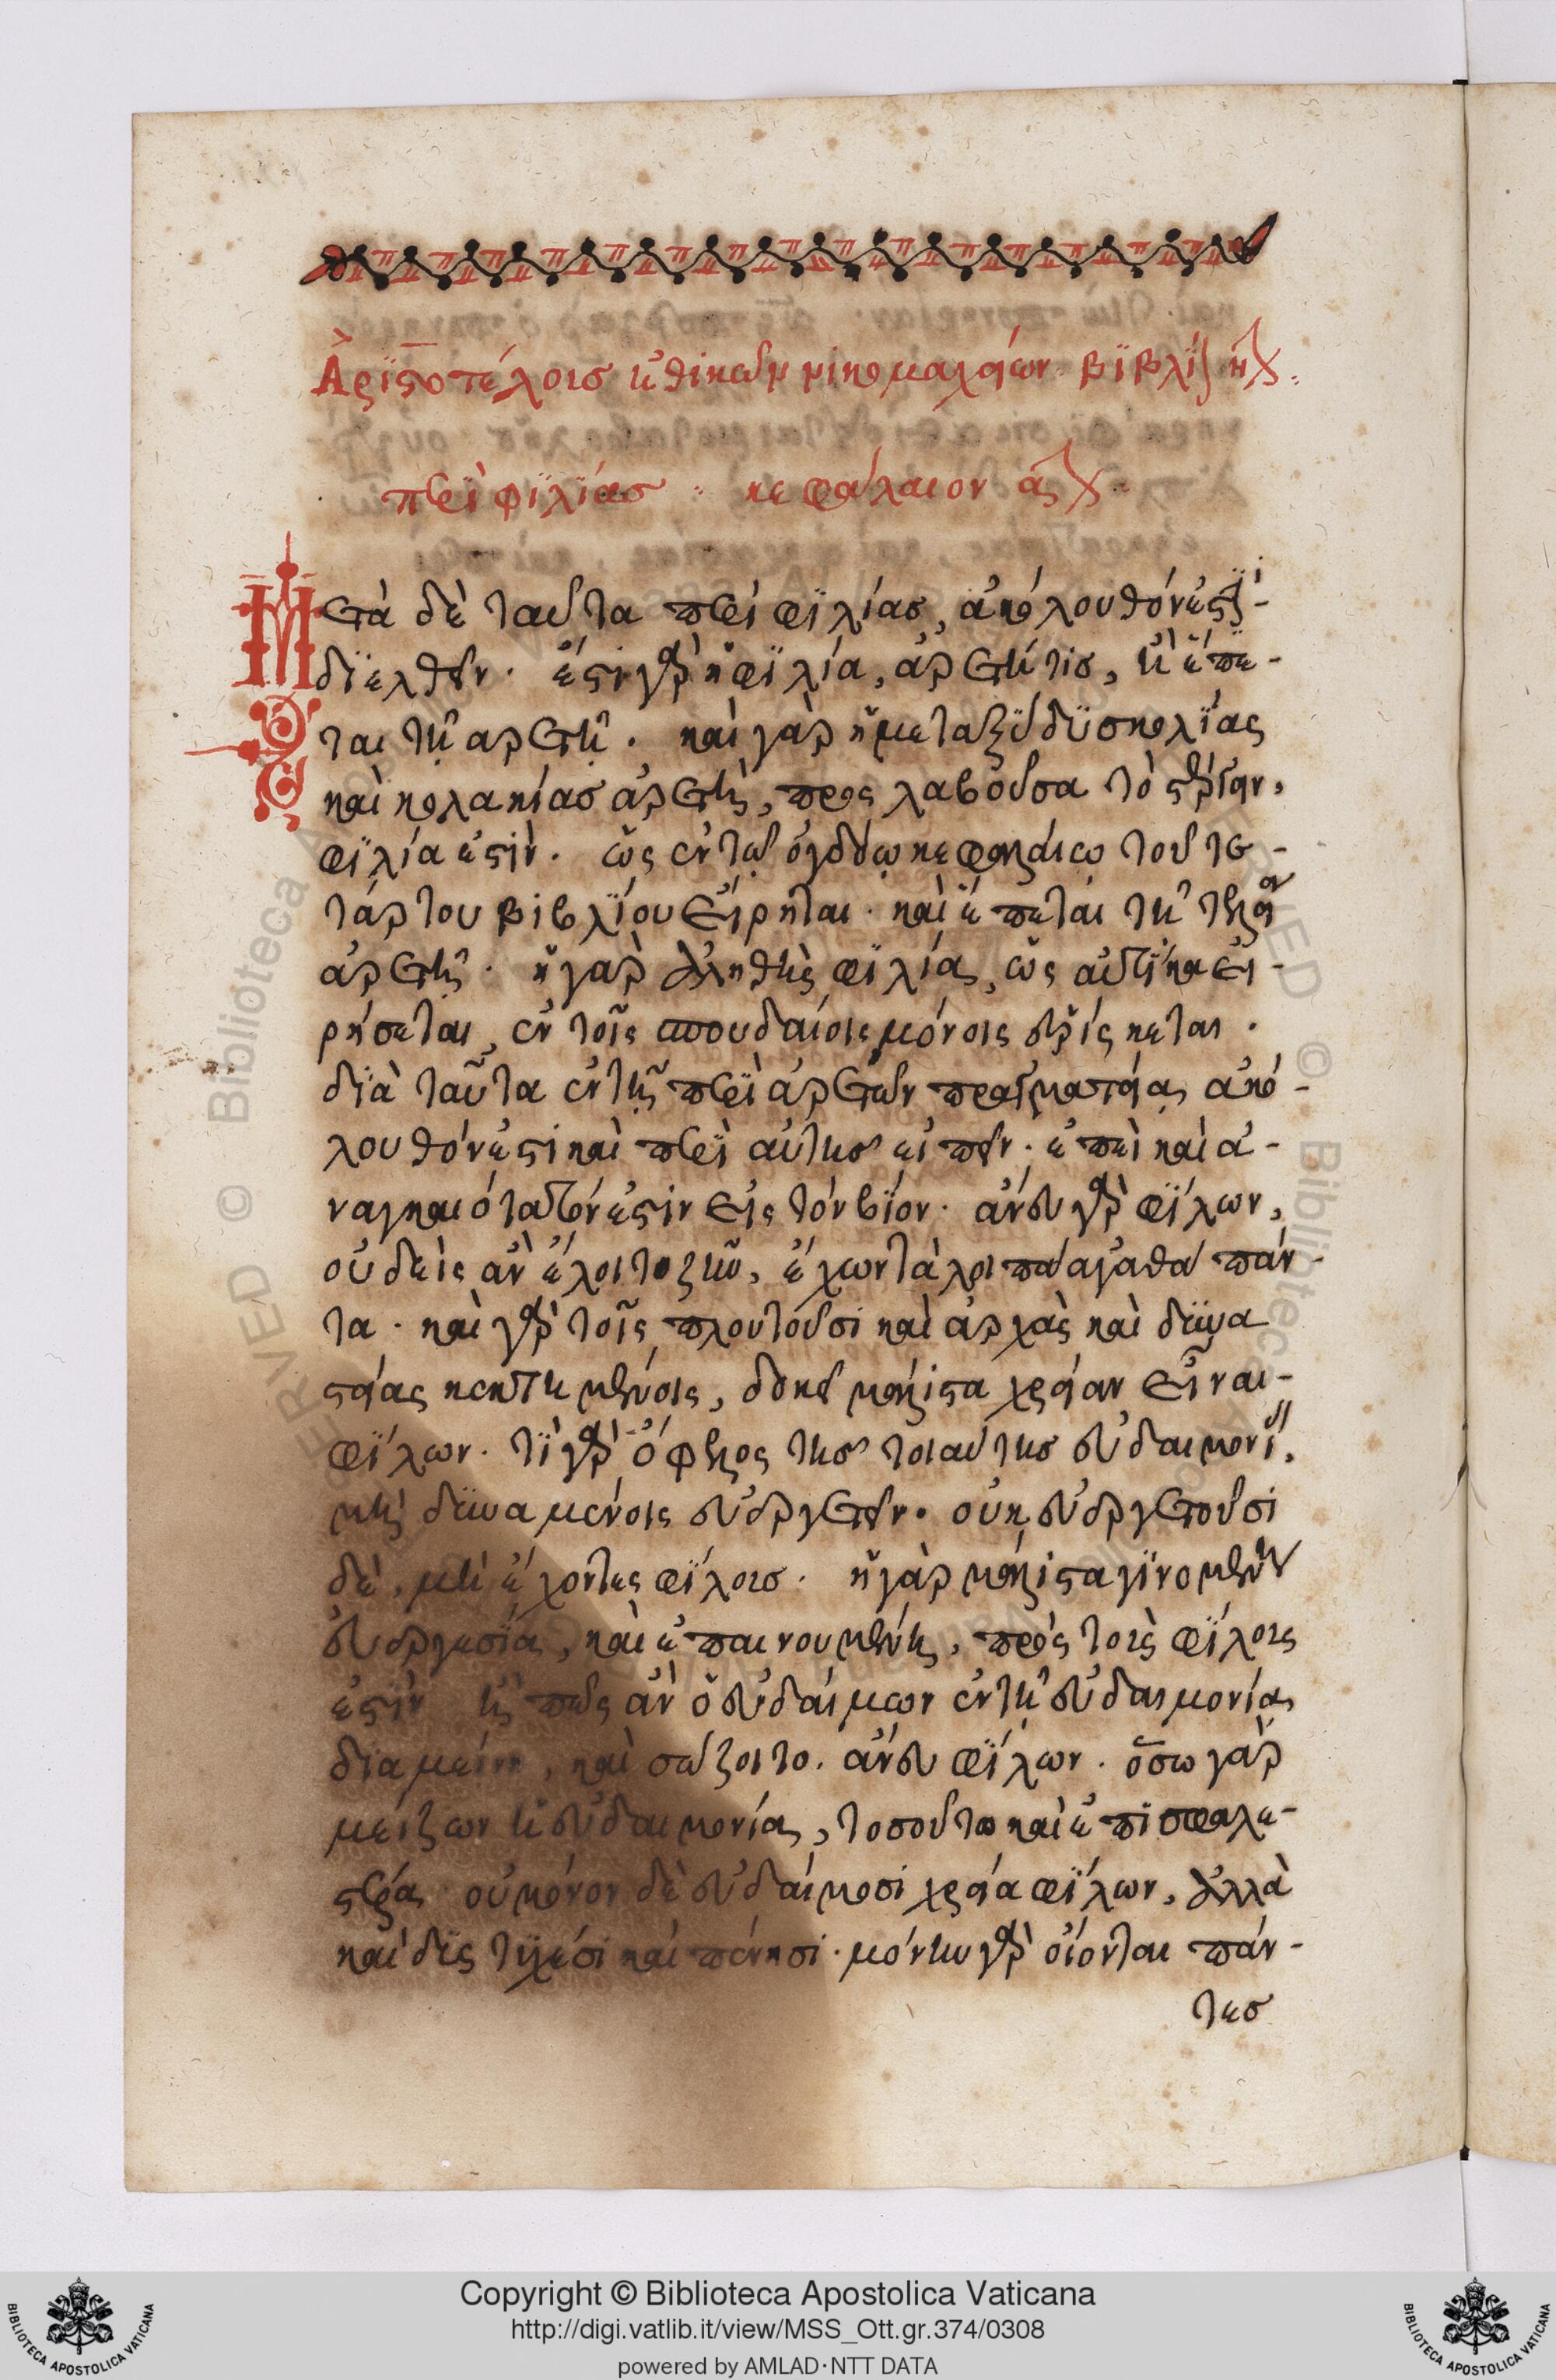 Ἀριστοτέλους ἠθικῶν νικομαχείων βιβλίον η΄.
περὶ φιλίας κεφάλαιον α΄.
Μετὰ δὲ ταῦτα περὶ φιλίας, ἀκόλουθόν ἐστι -
διελθεῖν. ἔστι γὰρ ἡ φιλία, ἀρετή τις, ἢ ἕπε -
ται τῇ ἀρετῇ. καὶ γὰρ ἡ μεταξὺ δυσκολίας
καὶ κολακίας ἀρετὴ, προς λαβοῦσα τὸ στέργειν,
φιλία ἐστὶν. ὡς ἐν τῷ ὀγδόῳ κεφαλαίῳ τοῦ τε -
τάρτου βιβλίου εἴρηται. καὶ ἕπεται τῇ τελείᾳ
ἀρετῇ. ἡ γὰρ ἀληθὴς φιλία, ὡς αὐτίκα εἰ -
ρήσεται, ἐν τοῖς σπουδαίοις μόνοις εὑρίσκεται.
διὰ ταῦτα ἐν τῇ περὶ ἀρετῶν πραγματεία, ἀκό -
λουθόν ἐστι καὶ περὶ αὐτῆς εἰπεῖν. ἐπεὶ καὶ ἀ -
ναγκαιότατόν ἐστιν εἰς τὸν βίον. ἄνευ γὰρ φίλων,
οὐδεὶς ἂν ἕλοιτο ζῆν, ἔχων τὰ λοιπὰ ἀγαθὰ πάν -
τα. καὶ γὰρ τοῖς πλουτοῦσι καὶ ἀρχὰς καὶ δυνα
στείας κεκτημένοις, δοκεῖ μάλιστα χρείαν εἶναι -
φίλων. τί γὰρ ὄφελος τῆς τοιαύτης εὐδαιμονίας,
μὴ δυναμένοις εὐεργετεῖν. οὐκ εὐεργετοῦσι
δὲ, μὴ ἔχοντες φίλους. ἡ γὰρ μάλιστα γινομένη
εὐεργεσία, καὶ ἐπαινουμένη, πρὸς τοὺς φίλους
ἐστὶν ἢ πῶς ἂν ὁ εὐδαίμων ἐν τῇ εὐδαιμονία
διαμείνῃ, καὶ σώζοιτο. ἄνευ φίλων. ὅσω γὰρ
μείζων ἡ εὐδαιμονία, τοσούτω καὶ ἐπισφαλε -
στέρα. οὐ μόνον δὲ εὐδαίμοσι χρεία φίλων, ἀλλὰ
καὶ δυςτυχέσι καὶ πένησι. μόνην γὰρ οἴονται πάν -
τες
Copyright © Biblioteca Apostolica Vaticana
http://digi.vatlib.it/view/MSS_Ott.gr.374/0308
powered by AMLAD·NTT DATA
BIBLIOTECA APOSTOLICA VATICANA
BIBLIOTECA APOSTOLICA VATICANA